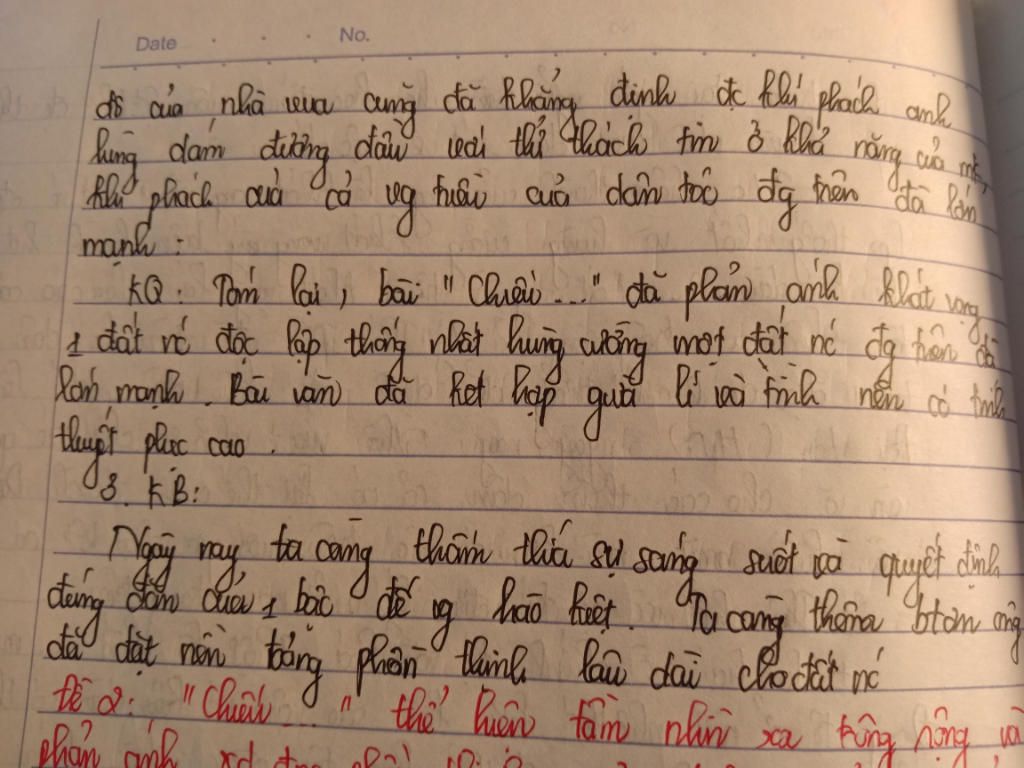 Date . . . No.
đô của nhà vua cũng đã khẳng định đc khí phách anh
hùng dám đương đầu với thử thách tin ở khả năng của mk,
khí phách của cả vg triều của dân tộc đg trên đà lớn
mạnh :
KQ : Tóm lại, bài "Chiếu..." đã phản ánh khát vọng
1 đất nc độc lập thống nhất hùng cường một đất nc đg trên đà
lớn mạnh. Bài văn đã kết hợp giữa lí và tình nên có tính
thuyết phục cao.
3. KB:
Ngày nay ta càng thấm thía sự sáng suốt và quyết định
đúng đắn của 1 bậc đế vg hào kiệt. Ta càng ơn ông
đã đặt nền tảng phồn thịnh lâu dài cho đất nc
Đề 2: "Chiếu..." thể hiện tầm nhìn xa trông rộng và
phản ánh